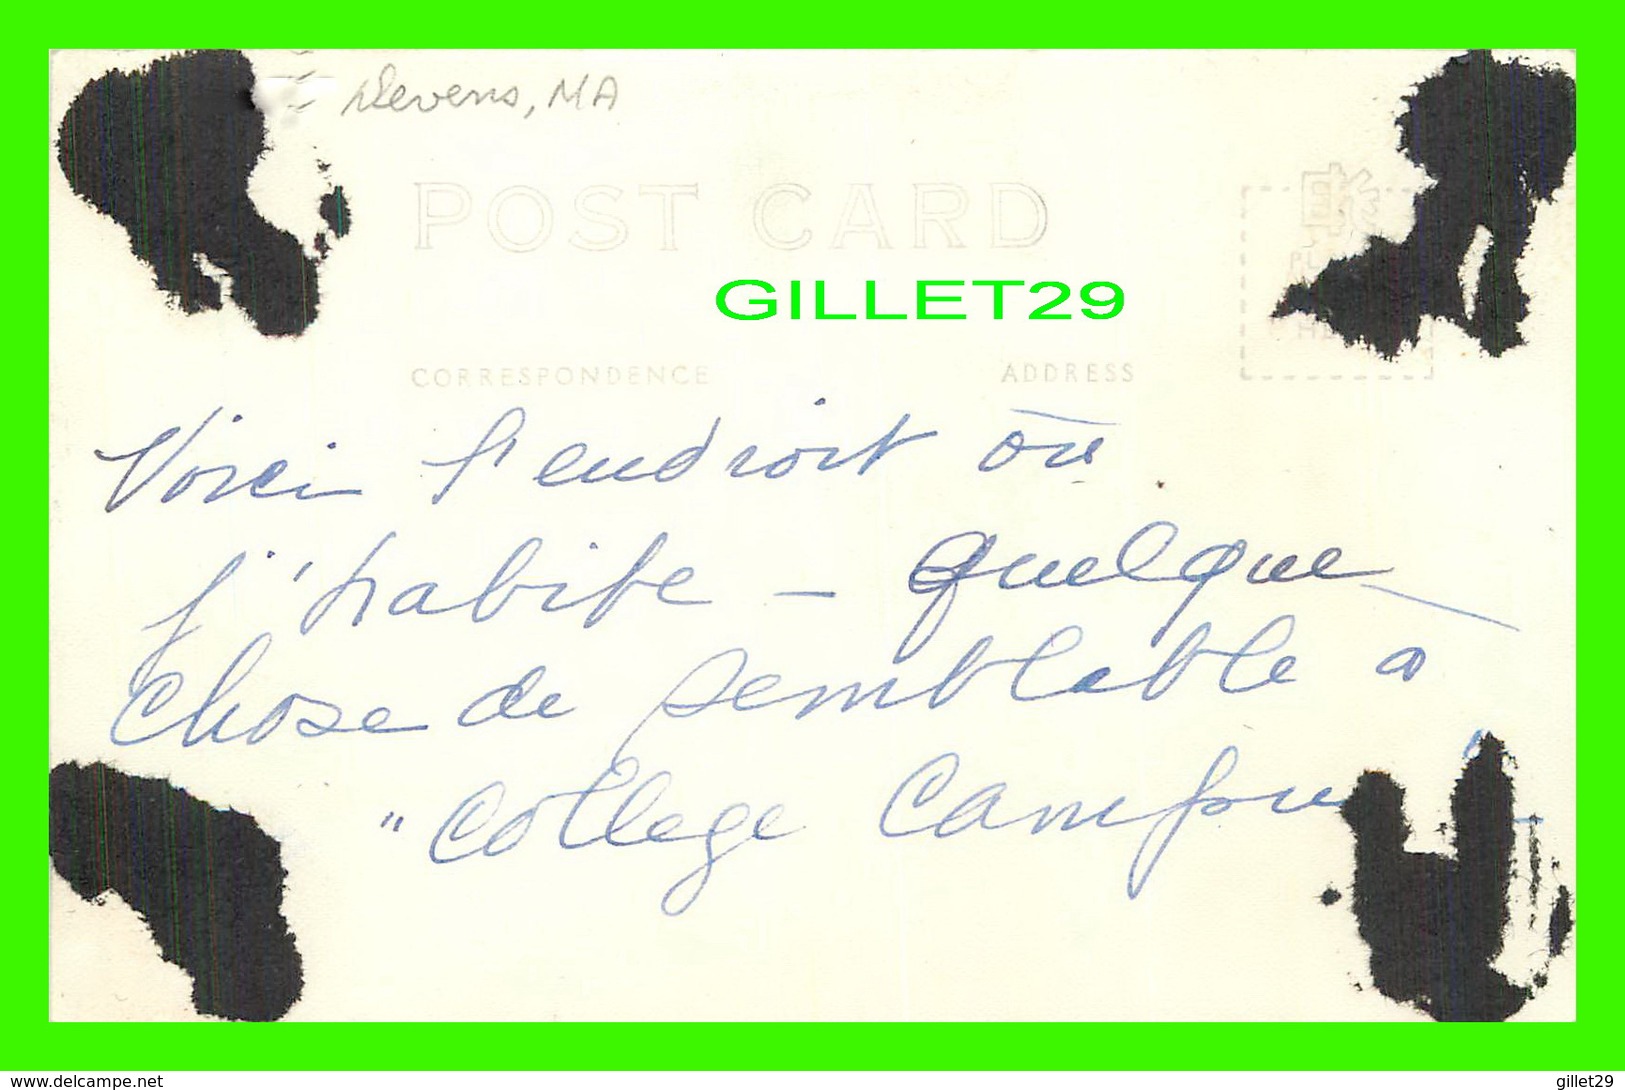 Devens, MA
POST CARD
GILLET29
CORRESPONDENCE ADDRESS
Voici l'endroit où
j'habite - Quelque
chose de semblable à
"College Campus"
delcampe.net gillet29